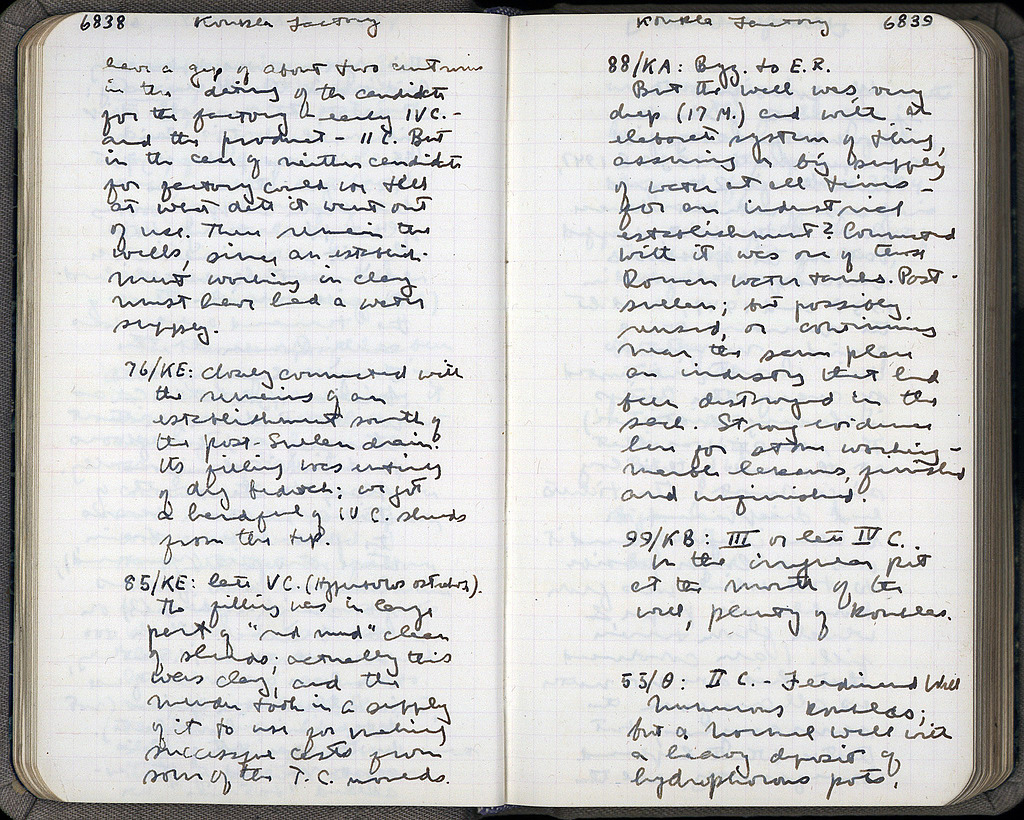 6838 Koukla Factory
have a gap of about two centuries
in the dating of the candidate
for the factory - early IV C. -
and the product - II C. But
in the case of neither candidate
for factory could we tell
at what date it went out
of use. There remain the
wells, since an establish-
ment working in clay
must have had a water
supply.
76/KE: closely connected with
the remains of an
establishment south of
the post-Sullan drain.
Its filling was entirely
of dug bedrock; we got
a handful of IV C. sherds
from the top.
85/KE: late V C. (Hyperbolos ostrakos).
The filling was in large
part of "red mud" clean
of sherds; actually this
was clay, and the
museum took in a supply
of it to use for making
successful casts from
some of the T.C. moulds.
6839 Koukla Factory
88/KA: Byz. to E.R.
But the well was very
deep (17 M.) and with an
elaborate system of tiling,
assuring a big supply
of water at all times -
for an industrial
establishment? Connected
with it was one of these
Roman water tanks. Post-
Sullan; but possibly
reused, or continuing
near the same place
an industry that had
been destroyed in the
sack. Strong evidence
here for stone working -
marble lekanes, finished
and unfinished.
99/KB: III or late IV C.
In the irregular pit
at the mouth of the
well, plenty of Kouklas.
53/Θ: II C. - Ferdinand Well
Numerous Kouklas;
but a normal well with
a heavy deposit of
hydrophorous pots.